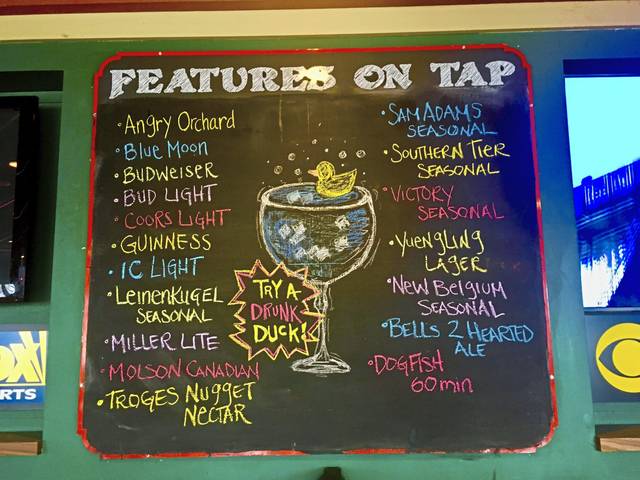 FEATURES ON TAP
• Angry Orchard
• Blue Moon
• BUDWEISER
• BUD LIGHT
• COORS LIGHT
• GUINNESS
• IC LIGHT
• LEINENKUGEL
SEASONAL
• MILLER LITE
• MOLSON CANADIAN
• TROGES NUGGET
NECTAR
TRY A
DRUNK
DUCK!
• SAM ADAMS
SEASONAL
• SOUTHERN TIER
SEASONAL
• VICTORY
SEASONAL
• YUENGLING
LAGER
• NEW BELGIUM
SEASONAL
• BELLS 2 HEARTED
ALE
• DOGFISH
60 min